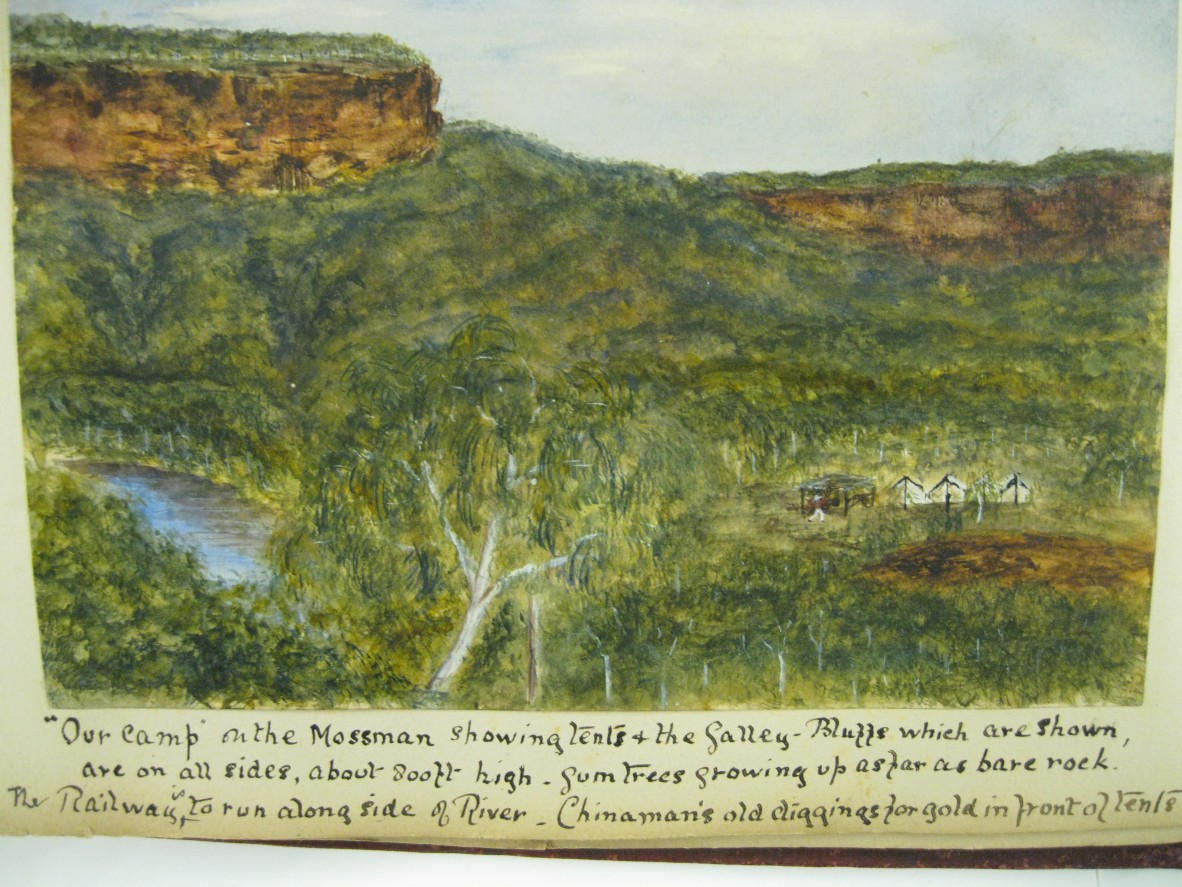 "Our Camp" on the Mossman showing tents & the Galley - Bluffs which are shown,
are on all sides, about 800ft high - gum trees growing up as far as bare rock.
The Railway is to run along side of River - Chinaman's old diggings for gold in front of tents